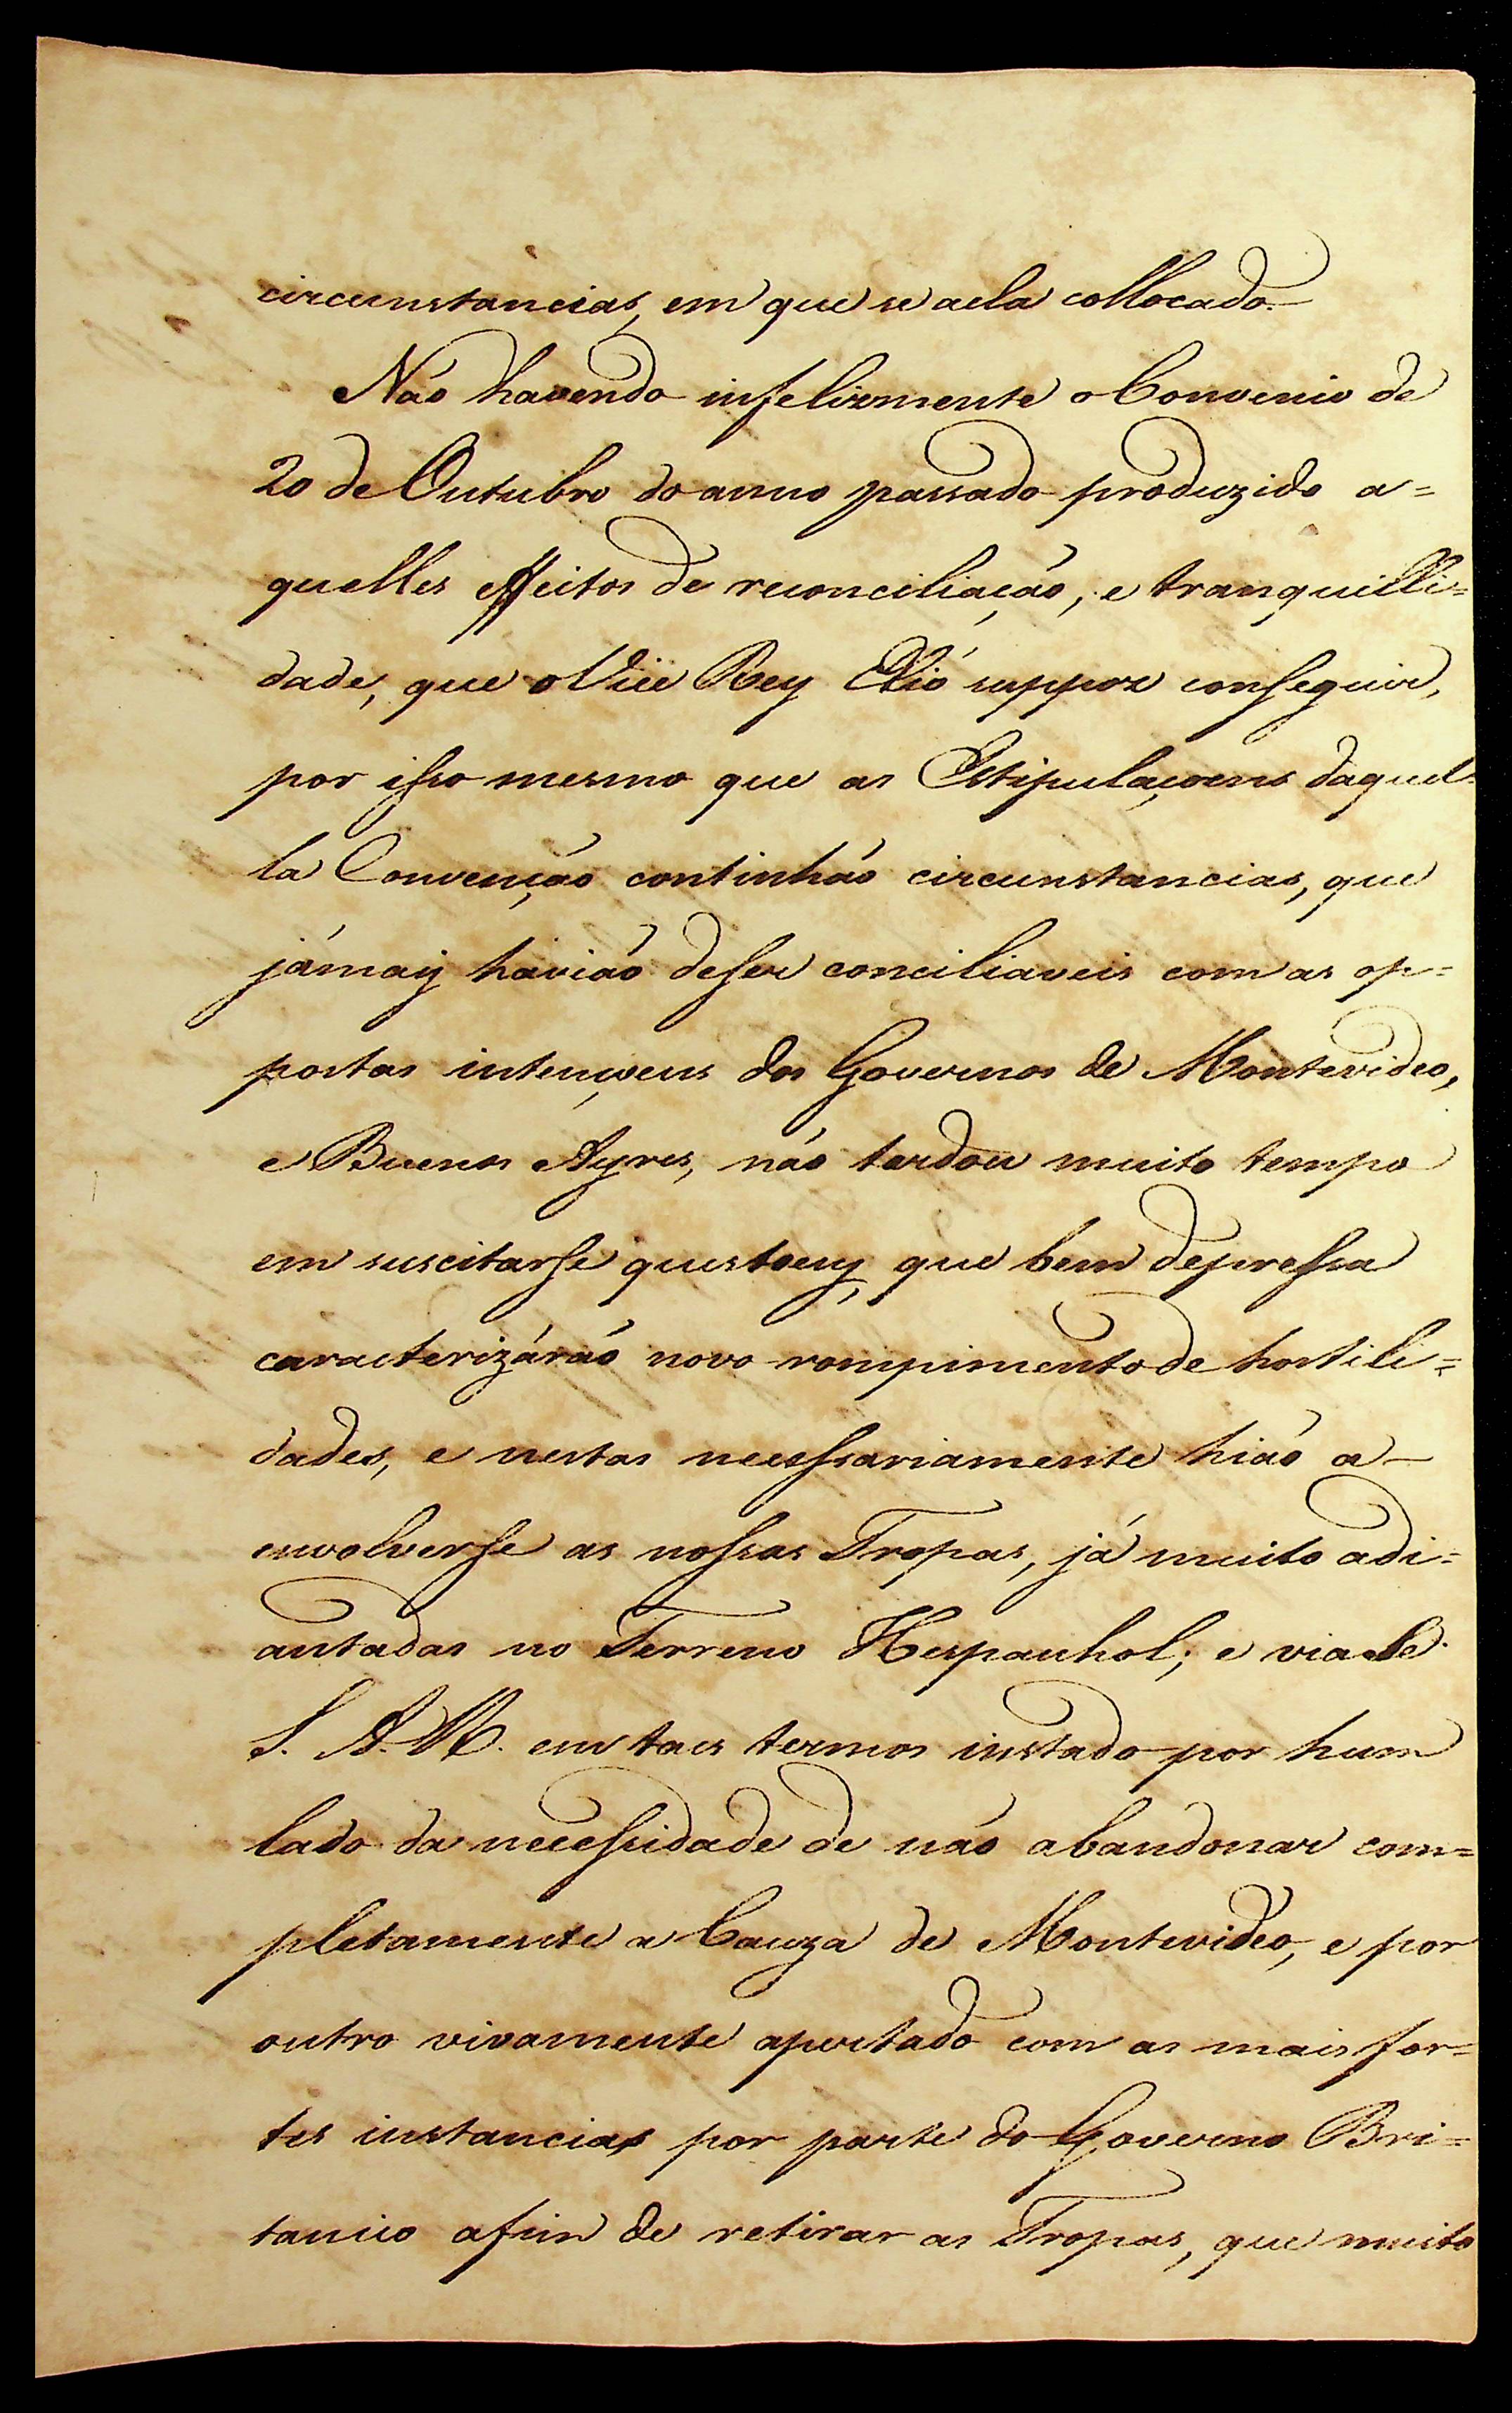 circunstancias, em que se acha collocado.
Não havendo infelizmente o Convenio de
20 de Outubro do anno passado produzido a=
quelles effeitos de reconciliação, e tranquilli=
dade, que o Vice Rey Elió suppoz conseguir,
por isso mesmo que as Estipulaçoens daquel=
la Convenção continhão circunstancias, que
jámais havião de ser conciliaveis com as op=
postas intençoens dos Governos de Montevideo,
e Buenos Ayres, não tardou muito tempo
em suscitarse questoens, que bem depressa
caracterizárão novo rompimento de hostili=
dades, e nestas necessariamente hião a
envolverse as nossas Tropas, já muito adi=
antadas no Terreno Hespanhol; e via se
S. A. R. em taes termos instado por hum
lado da necessidade de não abandonar com=
pletamente a Cauza de Montevideo, e por
outro vivamente apertado com as mais for=
tes instancias por parte do Governo Bri=
tanico afim de retirar as Tropas, que muito